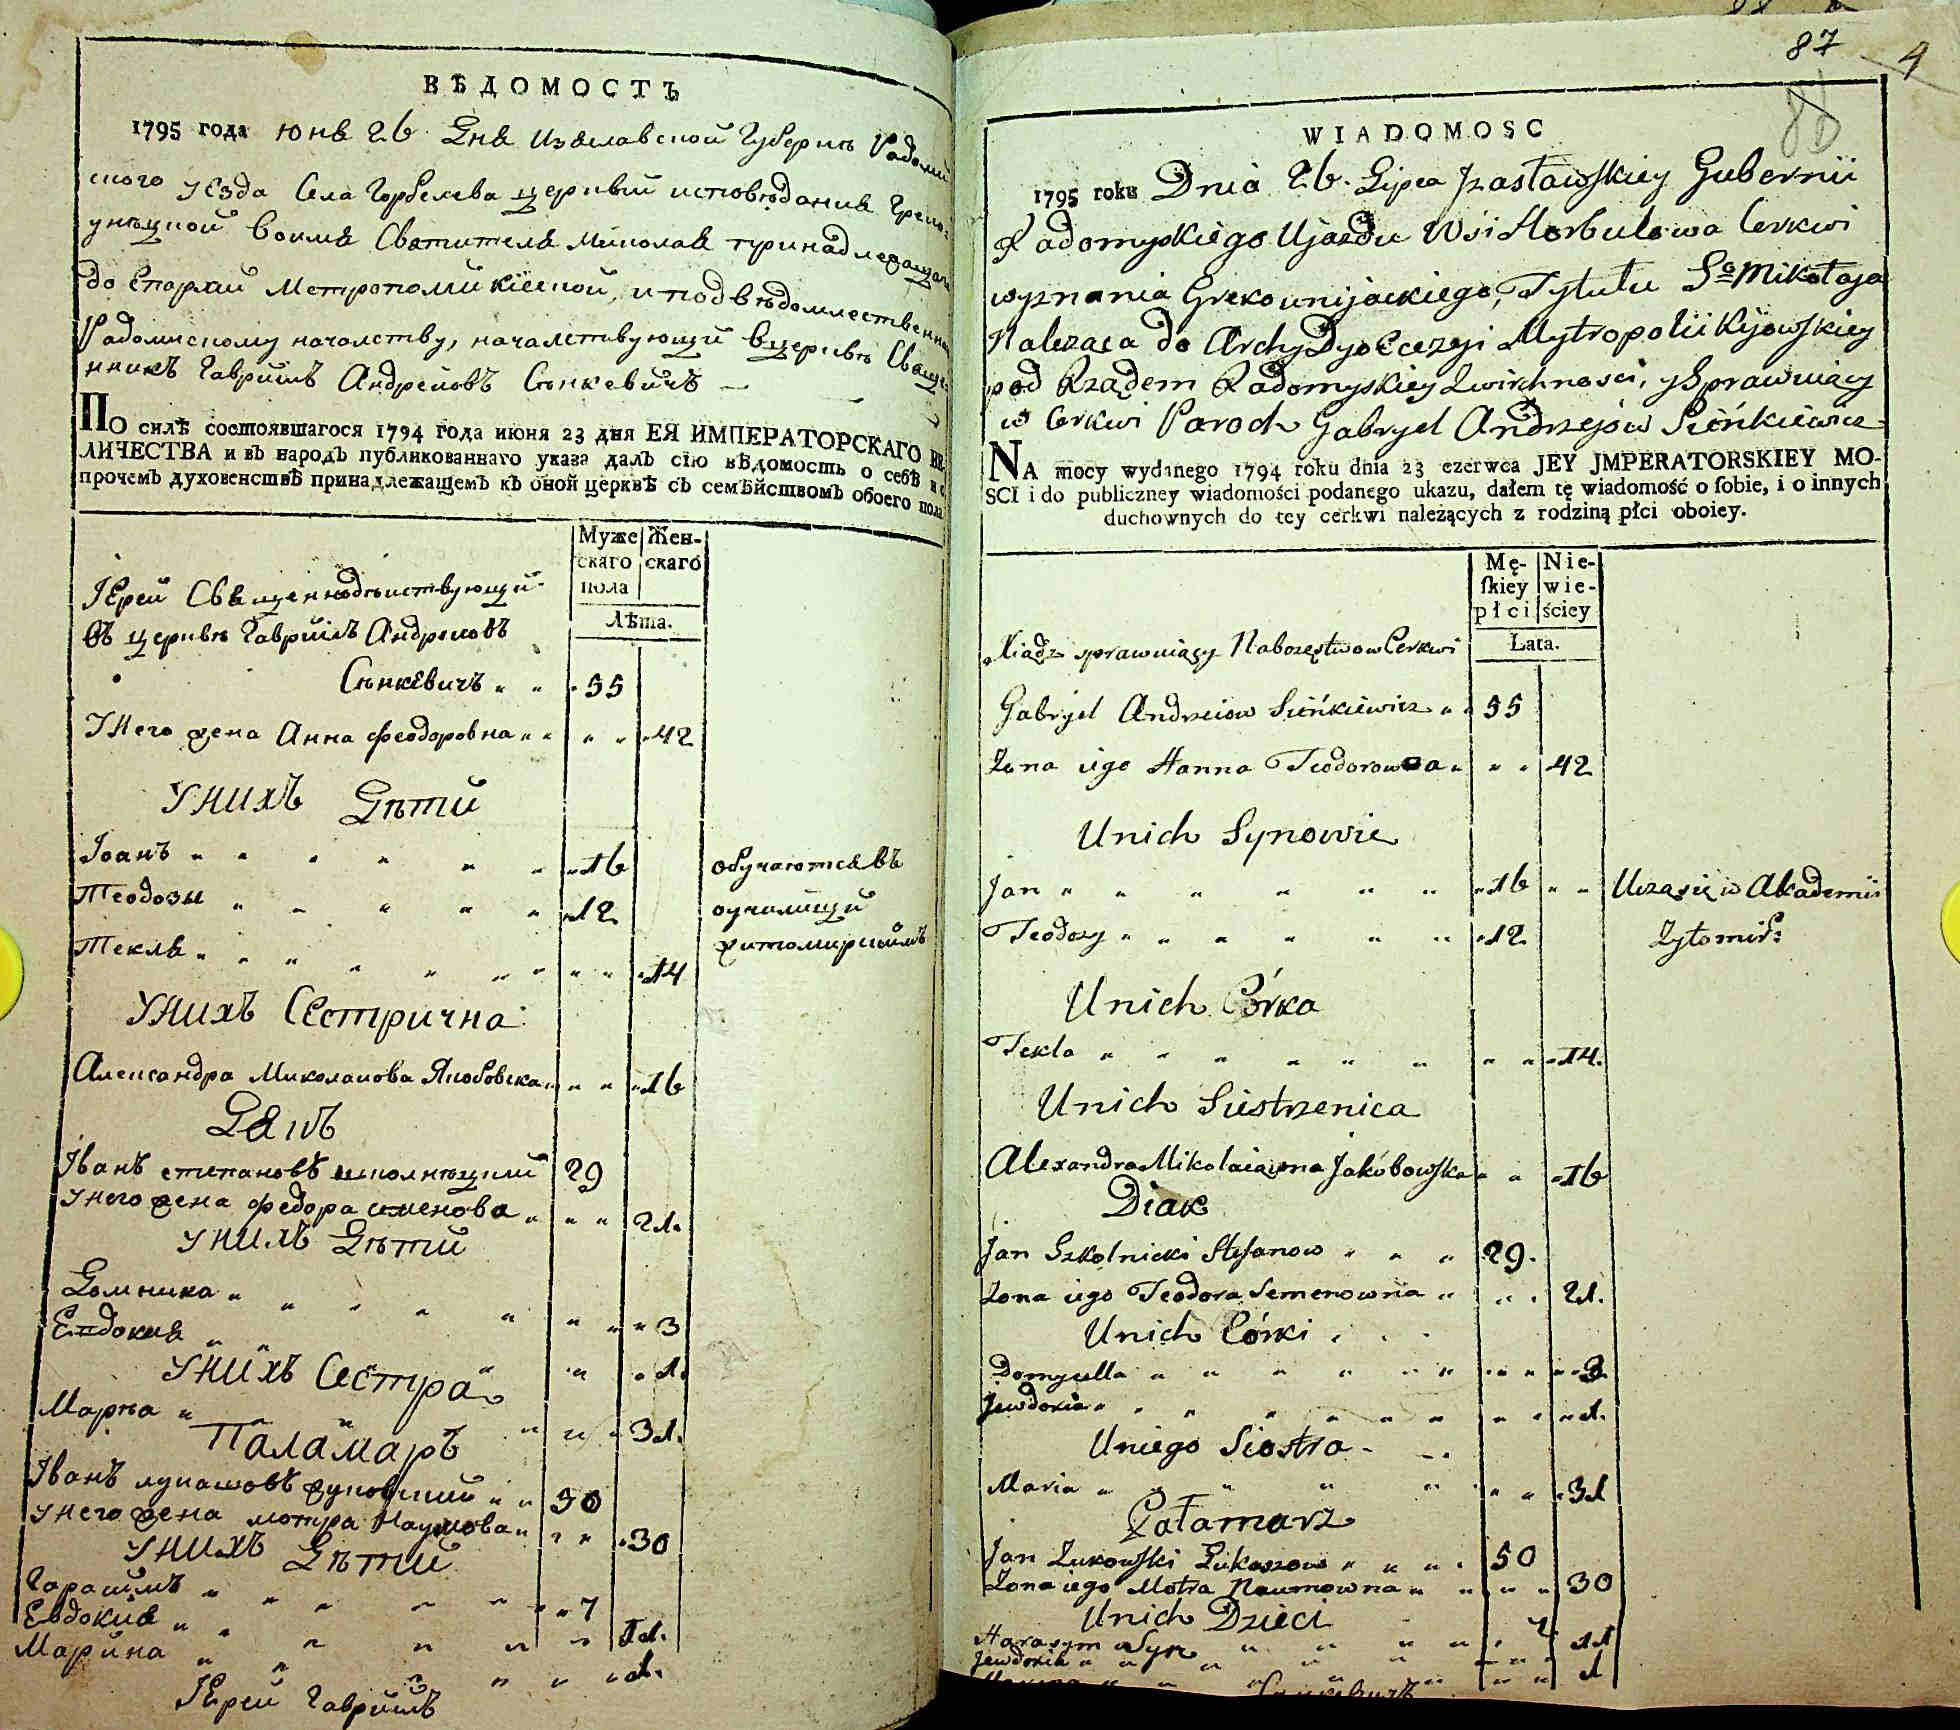 ВѢДОМОСТЬ
1795 года юня 26 Дня Изяславской Губерніи Радомы
скаго уѣзда Села Горбелева церквы исповѣдания Греко
унѣцкой воимя Святителя Николая принадлежащая
до Епархии Метрополии киевской, и подвѣдомственна
Радомискому началству, началствующий вцерквѣ Свяще
нникъ Гавриилъ Андреиовъ Сѣнкевичъ —
ПО силѣ состоявшагося 1794 года июня 23 дня ЕЯ ИМПЕРАТОРСКАГО ВЕ-
ЛИЧЕСТВА и въ народъ публикованнаго указа далъ сію вѣдомость о себѣ и о
прочемъ духовенствѣ принадлежащемъ къ оной церквѣ съ семѣйствомъ обоего пола
Муже Жен-
скаго скаго
пола
Лѣта.
Іерей Священнодѣиствующий
въ церквѣ Гавриилъ Андреиовъ
Сѣнкевичъ " " 55
У Него жена Анна Феодоровна " " " " 42
У нихъ Дѣти
Іоанъ " " " " " " 16 обучаются въ
Теодозы " " " " " 12 училищи
житомирскимъ
Текля " " " " " " " " " 14
У нихъ Сестрична
Александра Миколаиова Якобовска " " " 16
Дякъ
Іванъ степановъ 29
У него жена федора семенова " " " 21.
У нихъ Дѣти
Домникиа " " " " " " " " 3
Евдокия " " " " 1.
У нихъ Сестра
Мария " " " " " " 31.
Паламаръ
Іванъ лукашовъ жуковский " " 50
У него жена мотра Наумова " " " 30
У нихъ Дѣти
Гарасимъ " " " " " " " 7
Евдокия " " " " " " 11.
Марина " " " " " " 1.
Іерей Гавриилъ
87
4
88
WIADOMOSC
1795 roku Dnia 26. Lipca Izasławskiey Gubernii
Radomyskiego Ujazdu Wsi Horbulowa Cerkwi
wyznania Grekounijackiego, Tytułu Sgo Mikołaja
Nalezaca do ArchyDyoecezyi Mytropolii Kijowskiey
pod Rządem Radomyskiey Zwirchnosci, y Sprawuiący
w Cerkwi Paroch Gabryel Andrzejów Sieńkiewicz
NA mocy wydanego 1794 roku dnia 23 czerwca JEY JMPERATORSKIEY MO-
SCI i do publiczney wiadomości podanego ukazu, dałem tę wiadomość o ſobie, i o innych
duchownych do tey cerkwi należących z rodziną płci oboiey.
Mę- Nie-
ſkiey wie-
płci ściey
Lata.
Xiądz sprawuiący Nabozęstwo w Cerkwi
Gabryel Andrzeiow Sieńkiewicz " " 55
Zona iego Hanna Teodorowna " " " 42
Unich Synowie
Jan " " " " " " " 16 " " Uczą się w Akademii
Teodozy " " " " " " 12. Zytomir:
Unich Córka
Tekla " " " " " " " " 14.
Unich Siestrzenica
Alexandra Mikolaiowna Jakóbowska " " 16
Diak
Jan Szkolnicki Stefanow " " " 29.
Zona iego Teodora Semenowna " " " 21.
Unich Córki
Domycella " " " " " " " " " " 3.
Jewdokia " " " " " " " " " " 1.
Uniego Siostra
Maria " " " " " " 31
Pałamarz
Jan Zukowski Łukaszow " " " " 50
Zona iego Motra Naumowna " " " " 30
Unich Dzieci
Harasym Syn " " " " " 7
Jewdokia " " " " " " " 11
1